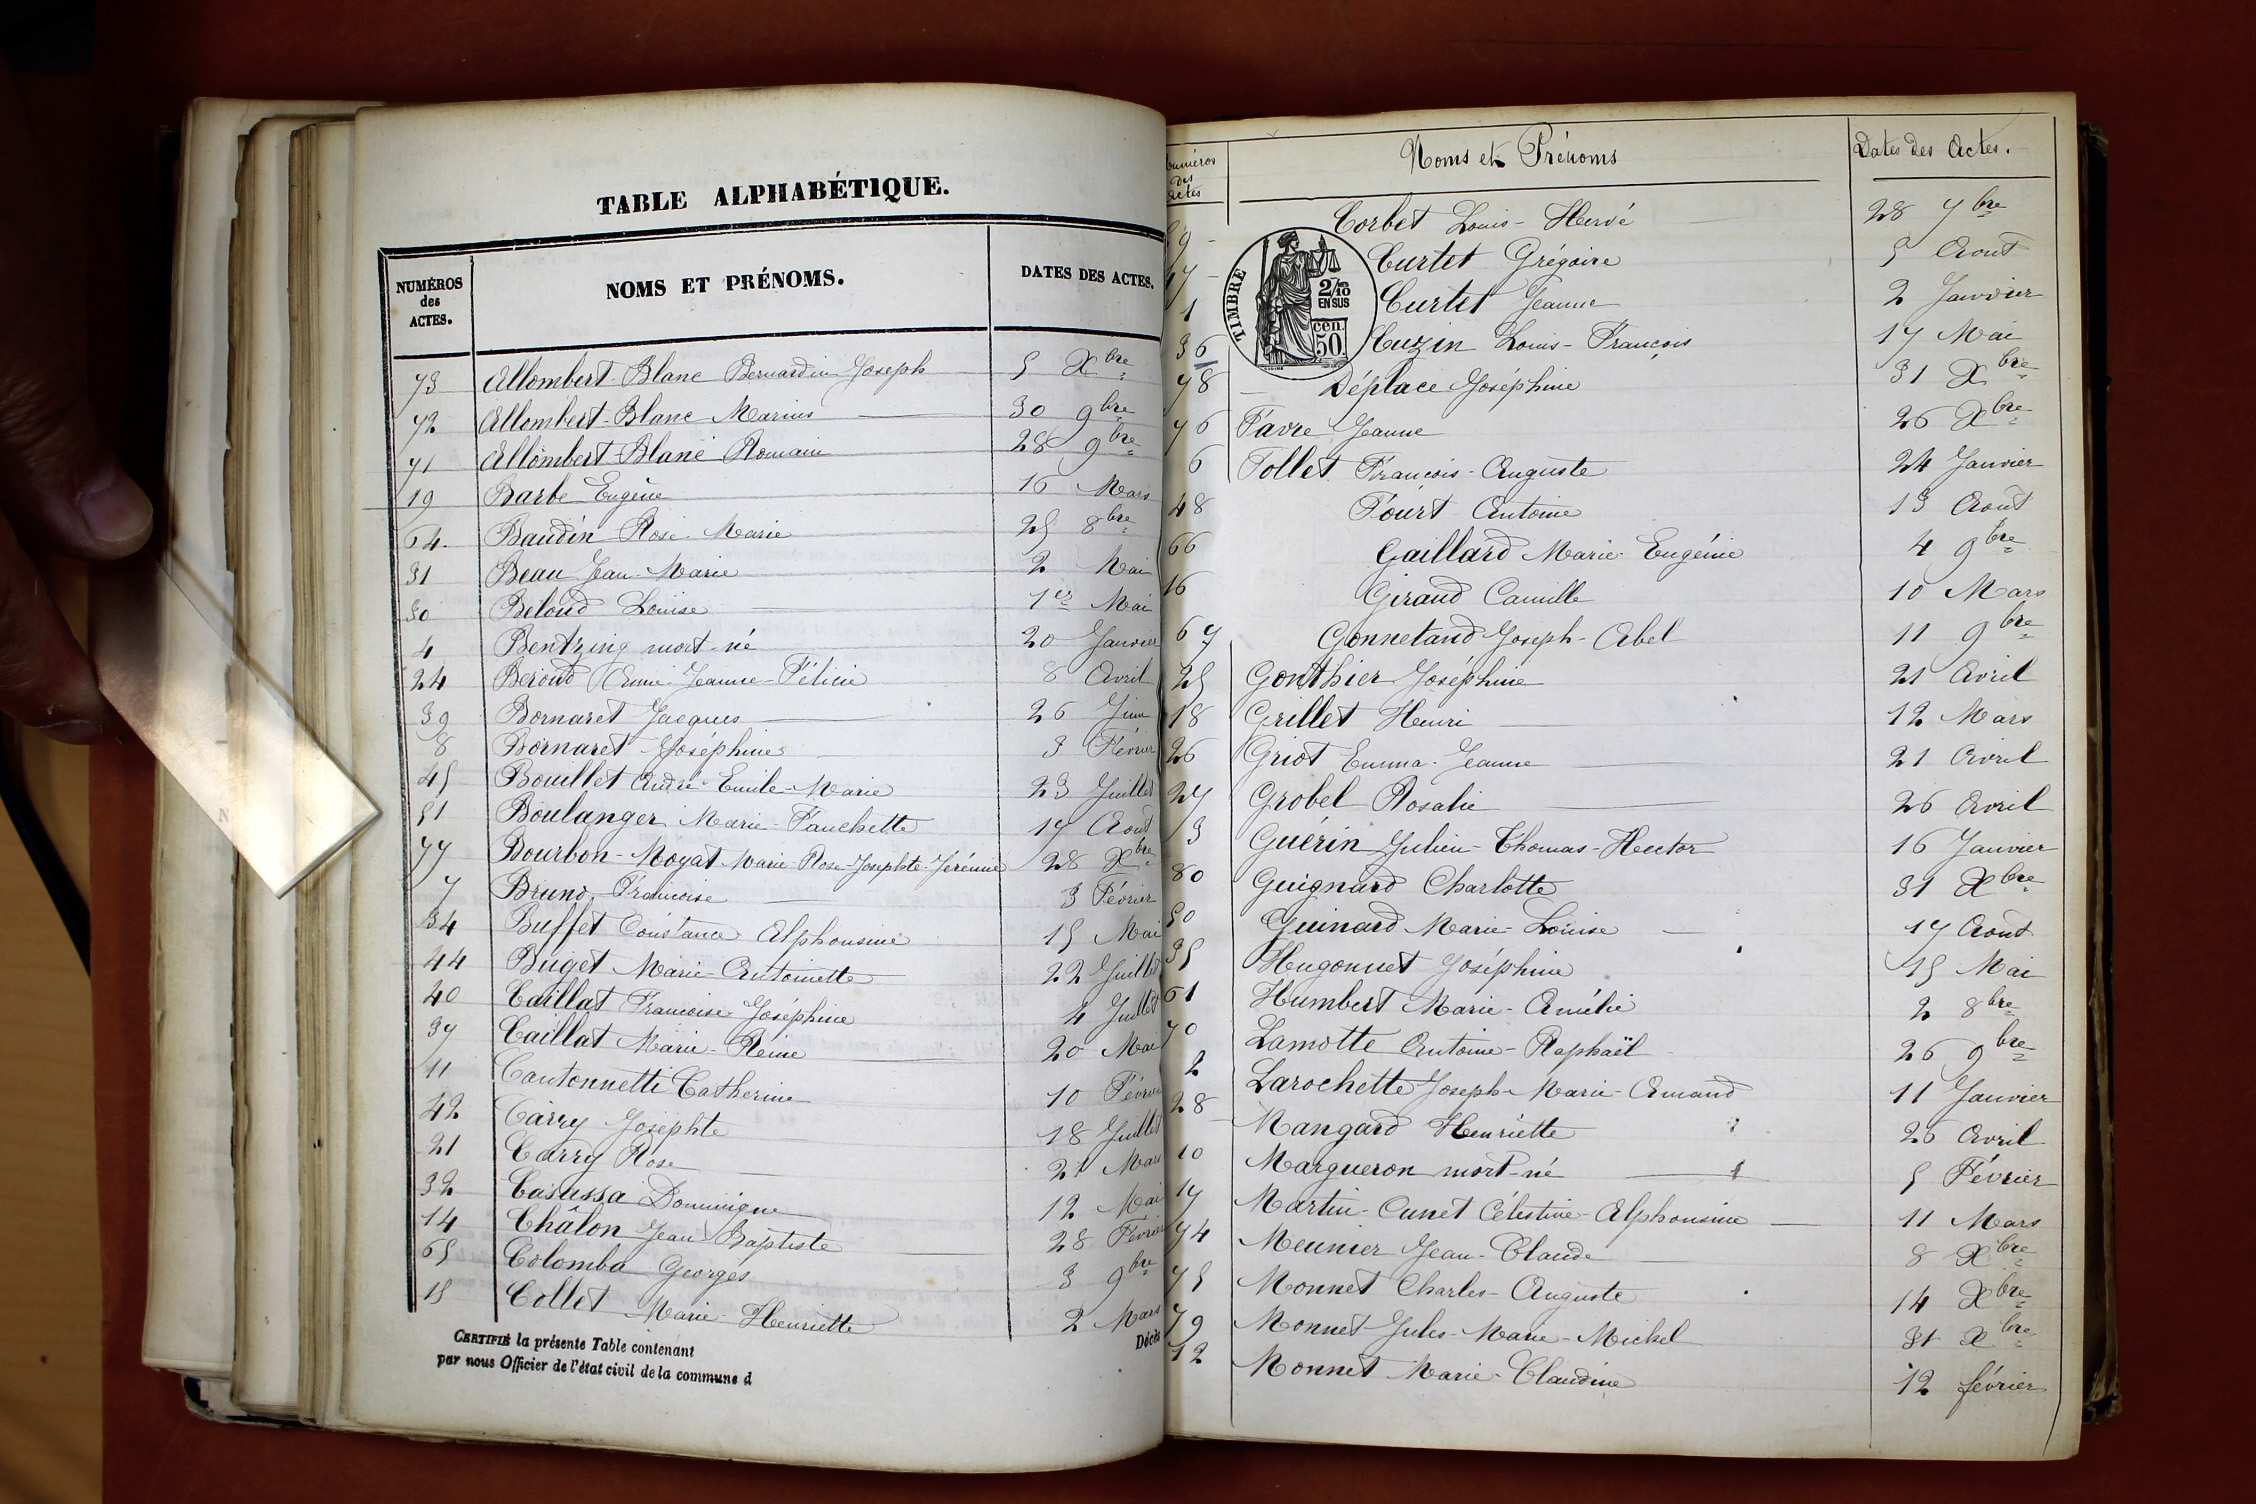 TABLE ALPHABÉTIQUE.
NUMÉROS des ACTES. NOMS ET PRÉNOMS. DATES DES ACTES.
73 Allombert-Blanc Bernardin Joseph 5 Xbre
72 Allombert-Blanc Marius 30 9bre
71 Allombert-Blanc Romain 28 9bre
19 Barbe Eugène 16 Mars
64 Baudin Rose Marie 25 8bre
31 Beau Jean-Marie 2 Mai
30 Béloud Louise 1er Mai
4 Bentzing mort-né 20 Janvier
24 Béroud Jeanne-Félicie 8 Avril
39 Bornaret Jacques 26 Juin
8 Bornaret Joséphine 3 Février
45 Bouillet André-Emile-Marie 23 Juillet
51 Boulanger Marie-Fanchette 17 Aout
77 Bourbon-Moyat Marie-Rose-Josephte-Jérémie 28 Xbre
7 Bruno Francoise 3 Février
34 Buffet Constance Alphonsine 15 Mai
44 Buget Marie-Antoinette 22 Juillet
40 Caillat Francoise Joséphine 4 Juillet
37 Caillat Marie-Reine 20 Mai
11 Cantonnetti Catherine 10 Février
42 Carry Josephte 18 Juillet
21 Carry Rose 21 Mars
32 Casussa Dominique 12 Mai
14 Châlon Jean Baptiste 28 Février
65 Colomba Georges 3 9bre
15 Collet Marie-Henriette 2 Mars
CERTIFIÉ la présente Table contenant Décès
par nous Officier de l'état civil de la commune d
Numéros des Actes Noms et Prénoms Dates des Actes.
Corbet Louis-Hervé 28 7bre
TIMBRE 2/10 EN SUS 50 cen.
47 Curtet Grégoire 5 Aout
1 Curtet Jeanne 2 Janvier
36 Cuzin Louis-François 17 Mai
78 Déplace Joséphine 31 Xbre
76 Favre Jeanne 26 Xbre
6 Follet François-Auguste 24 Janvier
48 Fourt Antoine 13 Aout
66 Gaillard Marie-Eugénie 4 9bre
16 Giraud Camille 10 Mars
67 Gonnetand Joseph-Abel 11 9bre
25 Gonthier Joséphine 21 Avril
18 Grillet Henri 12 Mars
26 Griot Emma-Jeanne 21 Avril
27 Grobel Rosalie 26 Avril
3 Guérin Julien-Thomas-Hector 16 Janvier
80 Guignard Charlotte 31 Xbre
50 Guinard Marie-Louise 17 Aout
35 Hugonnet Joséphine 15 Mai
61 Humbert Marie-Amélie 2 8bre
70 Lamotte Antoine-Raphaël 26 9bre
2 Larochette Joseph-Marie-Armand 11 Janvier
28 Mangard Henriette 26 Avril
10 Margueron mort-né 5 Février
17 Martin-Cunet Célestine-Alphonsine 11 Mars
74 Meunier Jean-Claude 8 Xbre
75 Monnet Charles-Auguste 14 Xbre
79 Monnet Jules-Marie-Michel 31 Xbre
12 Monnet Marie-Claudine 12 février